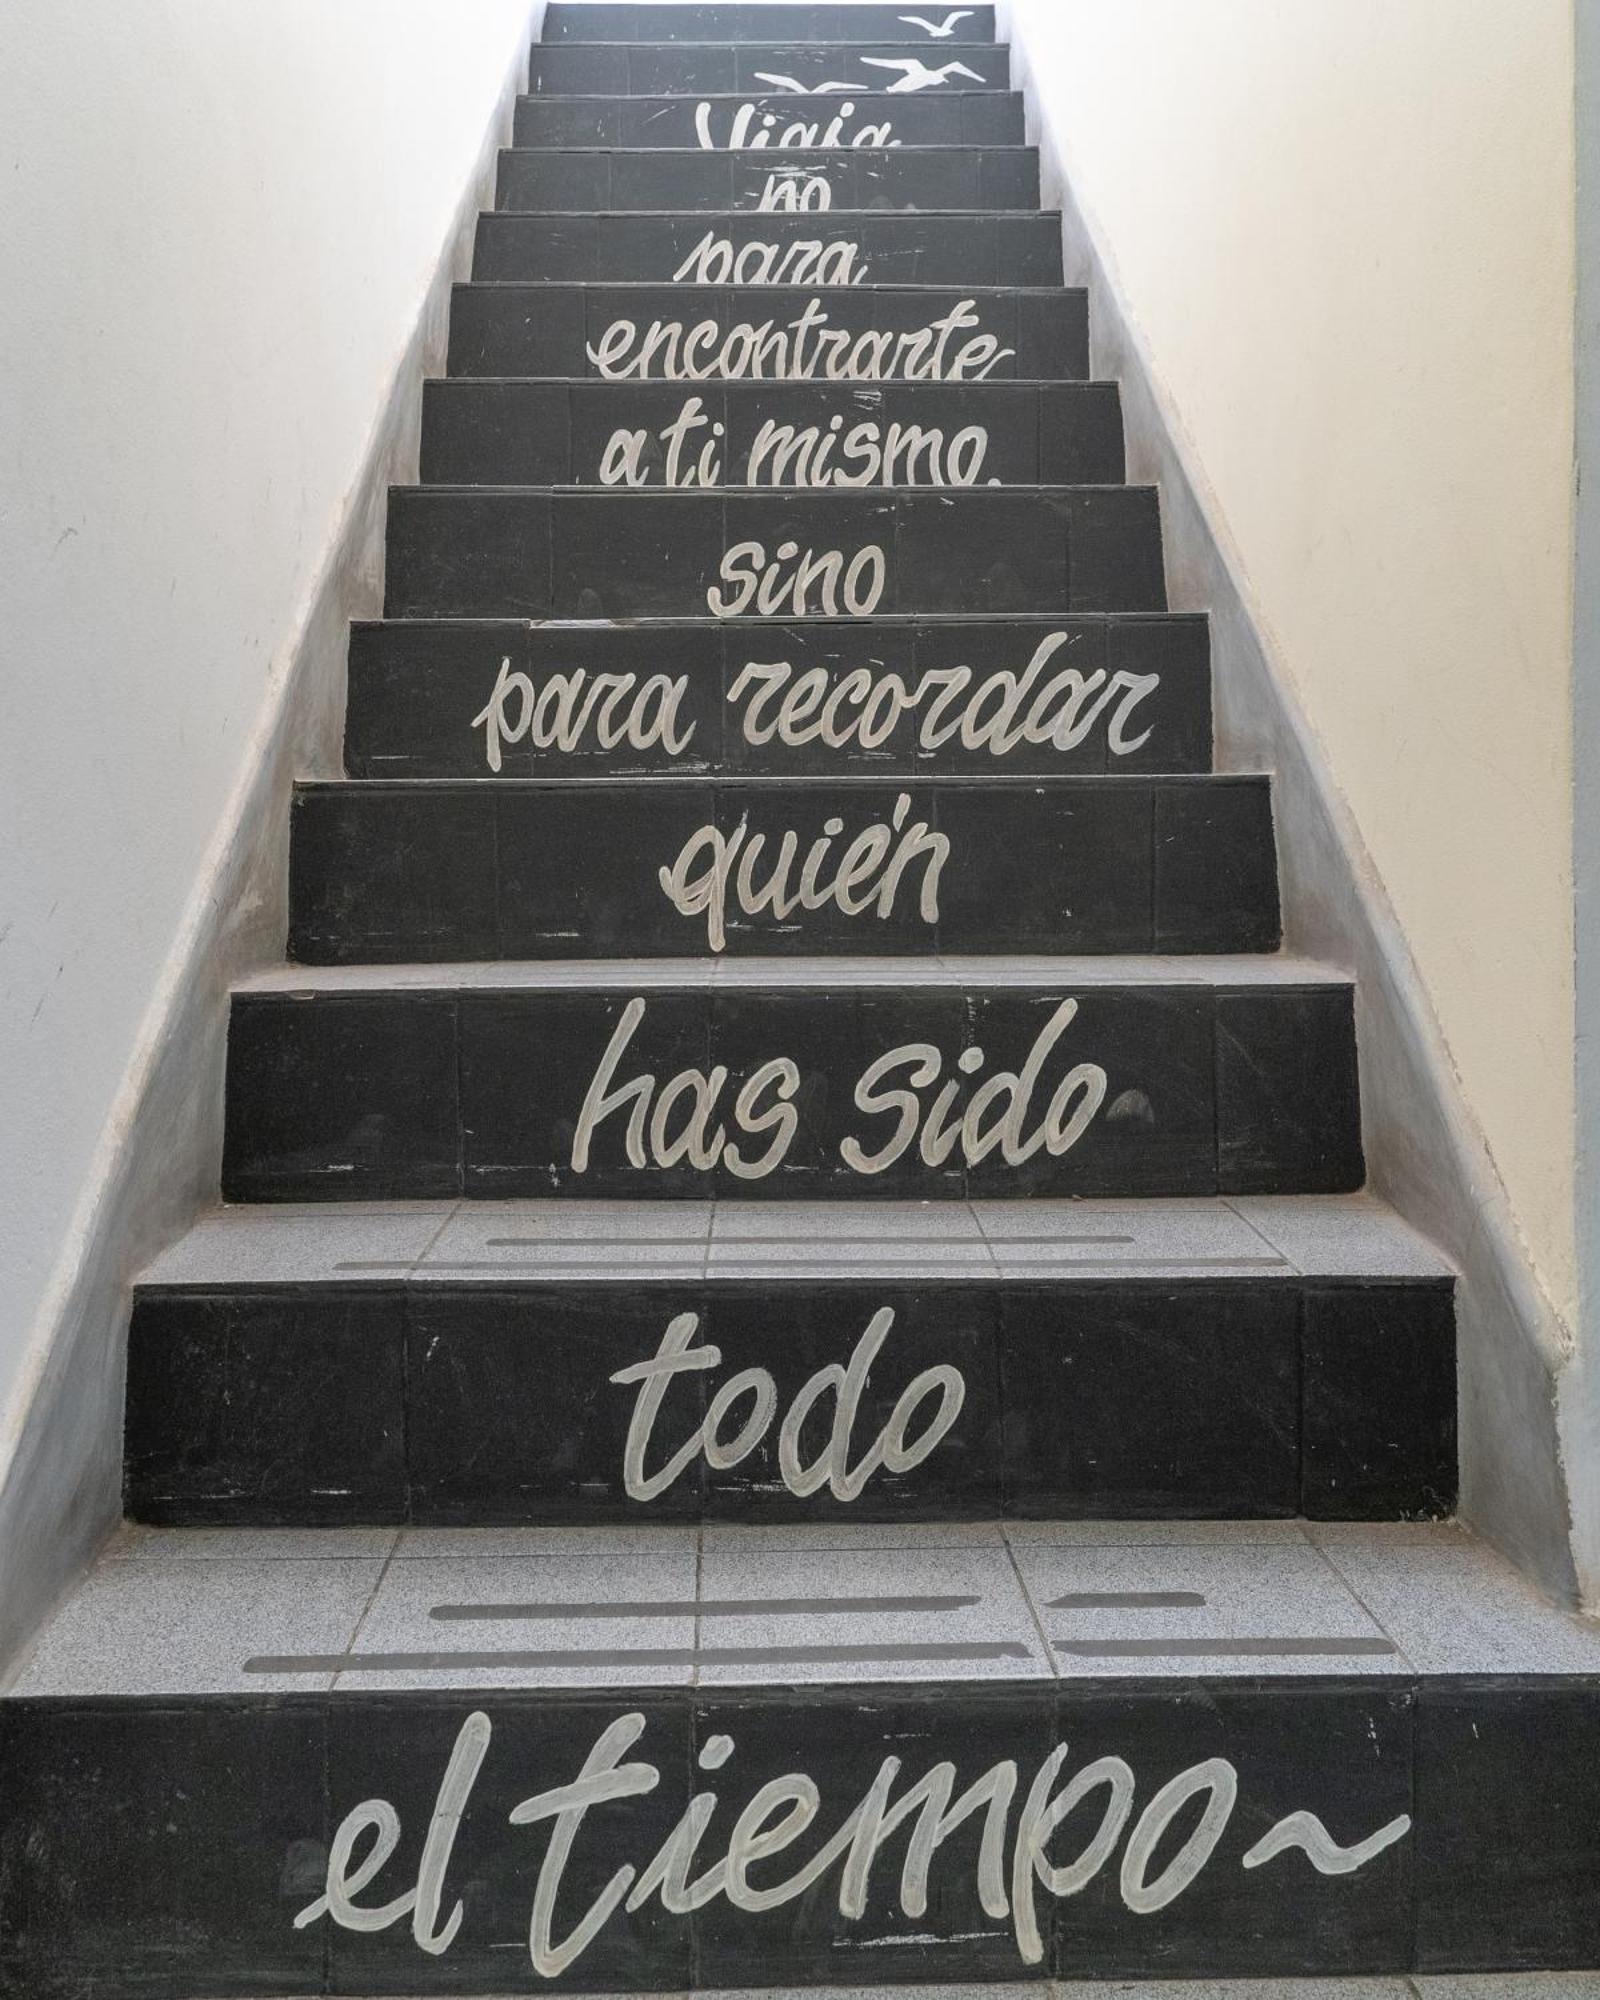 Viaja
no
para
encontrarte
a ti mismo,
sino
para recordar
quién
has sido
todo
el tiempo~